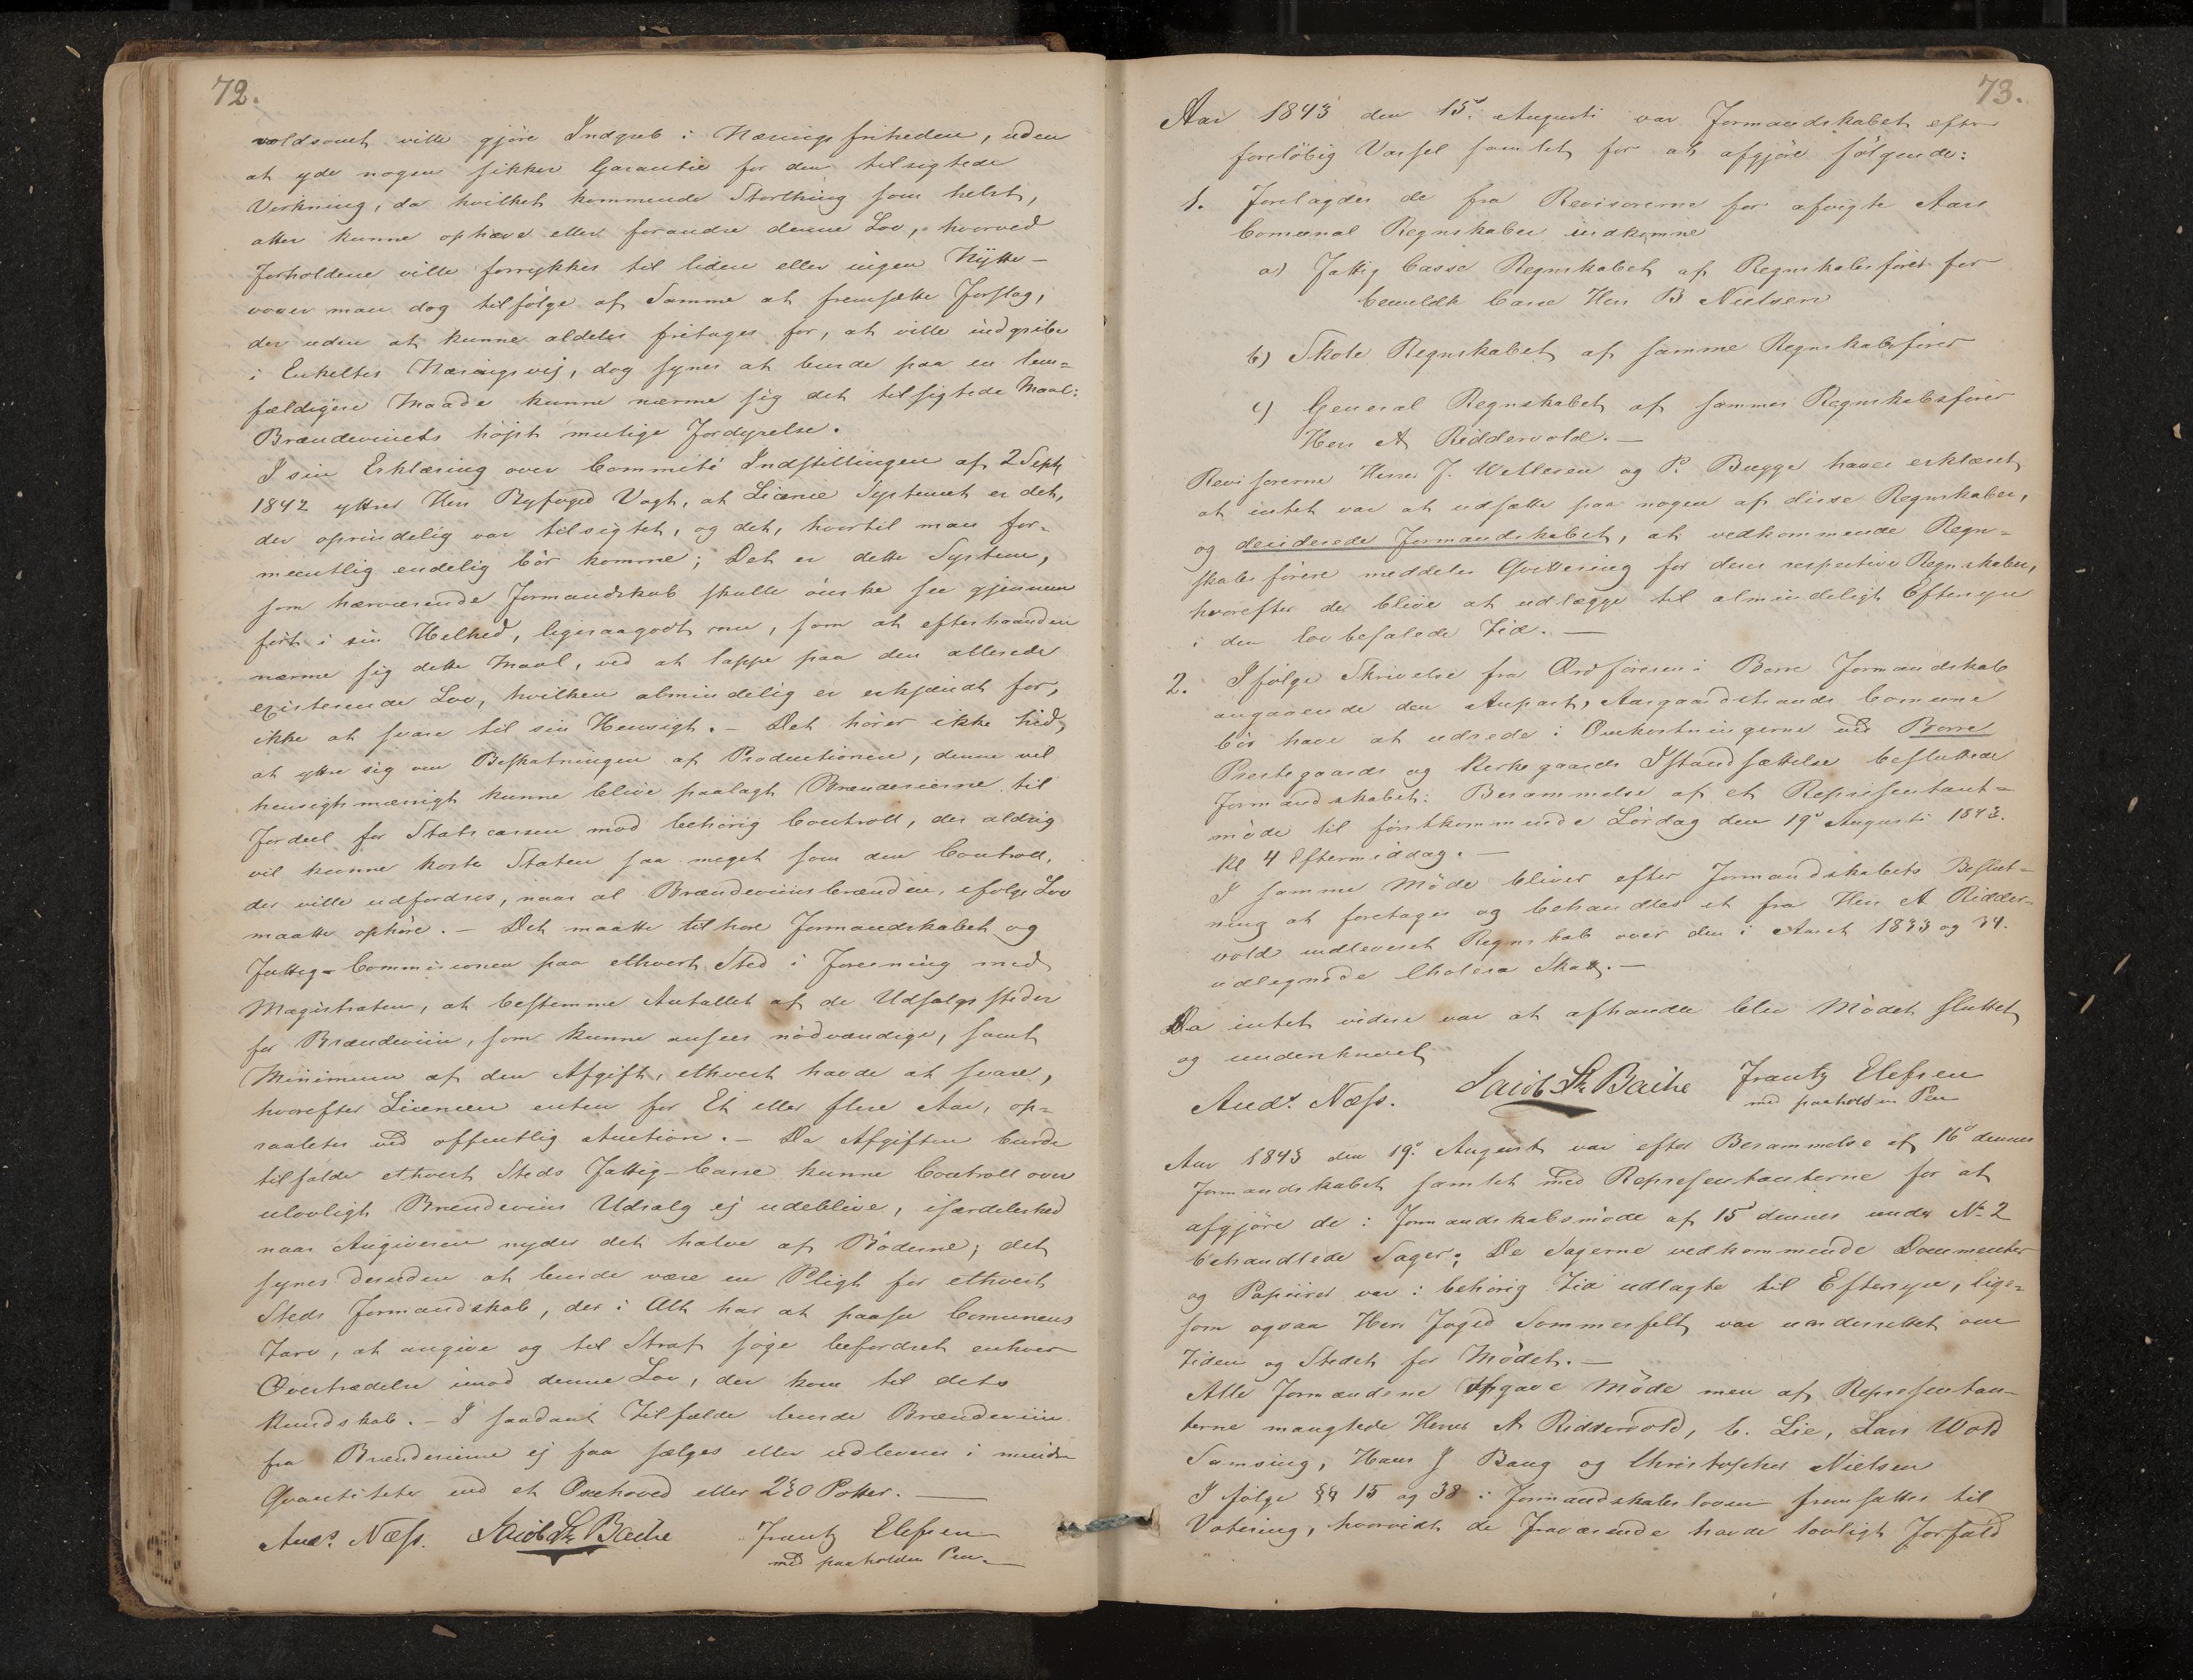 72.
voldsomt ville gjøre Indgreb i Næringsfriheden, uden
at yde nogen sikker Garantie for den tilsigtede
Virkning, da hvilket kommende Storthing som helst,
atter kunne ophæve eller forandre denne Lov, hvorved
Forholdene ville forrykkes til liden eller ingen Nytte –
vover man dog tilfølge af Samme at fremsætte Forslag,
der uden at kunne aldeles fritages for, at ville indgribe
i Enkeltes Næringsvej, dog synes at burde paa en lem=
fældigere Maade kunne nærme sig det tilsigtede Maal:
Brændevinets højst mulige Fordyrelse.
I sin Erklæring over Committé Indstillingen af 2 Sept
1842 yttrer Herr Byfoged Vogt, at Licence Systemet er det,
der oprindelig var tilsigtet, og det, hvortil man for-
meentlig endelig bör komme; Det er dette System,
som nærværende Formandskab skulle önske see gjennem
fört i sin Helhed, ligesaagodt nu, som at efterhaanden
nærme sig dette Maal, ved at lappe paa den allerede
existerende Lov, hvilken almindelig er erkjændt for,
ikke at svare til sin Hensigt. – Det hører ikke hid,
at yttre sig om Beskatningen af Productionen, denne vil
hensigtsmæssigt kunne blive paalagt Brænderierne til
Fordeel for Statscassen mod behörig Controll, der aldrig
vil kunne koste Staten saa meget som den Controll,
der ville udfordres, naar al Brændeviinsbrænden, ifølge Lov
maatte ophøre. – Det maatte tilhøre Formandskabet og
Fattig-Commisionen paa ethvert Sted i Forening med
Magistraten, at bestemme Antallet af de Udsalgssteder
for Brændeviin, som kunne ansees nödvændige, samt
Minimum af den Afgift, ethvert havde at svare,
hvorefter Licencen enten for Et eller flere Aar, op-
raabtes ved offentlig Auction. – Da Afgiften burde
tilfalde ethvert Steds Fattig-Casse kunne Controll over
ulovligt Brændeviins Udsalg ej udeblive, isærdeleshed
naar Angiveren nyder det halve af Böderne; det
synes desuden at burde være en Pligt for ethvert
Steds Formandskab, der i Alt har at paasee Comunens
Tarv, at angive og til Straf søge befordret enhver
Overtrædelse imod denne Lov, der kom til dets
Kundskab. – I saadant Tilfælde burde Brændeviin
fra Brænderierne ej faa sælges eller udleveres i mindre
Qvantiteter end et Oxehoved eller 230 Potter. –
Ands. Næss. Jacob Sk Bache Frantz Elefsen
med paaholden Pen. –
73.
Aar 1843 den 15de Augusti var Formandskabet efter
foreløbig Varsel samlet for at afgjöre følgende:
1. Forelagdes de fra Revisorerne for afvigte Aars
Comunal Regnskaber indkomne
a) Fattig Casse Regnskabet af Regnskabsförer for
bemeldte Casse Herr B Nielsen
b) Skole Regnskabet af samme Regnskabsfører
c) General Regnskabet af sammes Regnskabsfører
Herr A Riddervold. –
Revisorerne Herrer J. Wetlesen og P. Bugge have erklæret,
at intet var at udsætte paa nogen af disse Regnskaber,
og desiderede Formandskabet, at vedkommende Regn=
skabsförere meddeles Qvittering for deres respective Regnskaber,
hvorefter de blive at udlægge til almindeligt Eftersyn
i den lovbefalede Tid. –
2. Ifølge Skrivelse fra Ordføreren i Borre Formandskab
angaaende den Anpart, Aasgaardstrands Comune
bör have at udrede i Omkostningerne ved Borre
Prestegaards og Kirkegaards Istandsættelse besluttede
Formandskabet: Berammelse af et Repræsentant=
møde til førstkommende Lördag den 19de Augusti 1843.
Kl 4 Eftermiddag. –
I samme Møde bliver efter Formandskabets Beslut=
ning at foretages og behandles et fra Herr A Ridder=
vold indleveret Regnskab over den i Aaret 1833 og 34.
udlignede Cholera Skatt. –
Da intet videre var at afhandle blev Mödet sluttet
og underskrevet
Ands. Næss. Jacob Sk Bache Frantz Elefsen
med paaholden Pen
Aar 1843 den 19de August var efter Berammelse af 16de dennes
Formandskabet samlet med Repræsentanterne for at
afgjöre de i Formandskabsmöde af 15de dennes under No 2
behandlede Sager; De Sagerne vedkommende Documenter
og Papiirer var i behörig Tid udlagte til Eftersyn, lige=
som ogsaa Herr Foged Sommerfelt var underrettet om
Tiden og Stedet for Mödet. –
Alle Formændene afgave Möde men af Repræsentan-
terne manglede Herrer A Riddervold, C. Lie, Lars Wold
Samsing, Hans J Bang og Christopher Nielsen
I følge §§ 15 og 38 i Formandskabsloven fremsattes til
Votering, hvorvidt de Fraværende havde lovligt Forfald